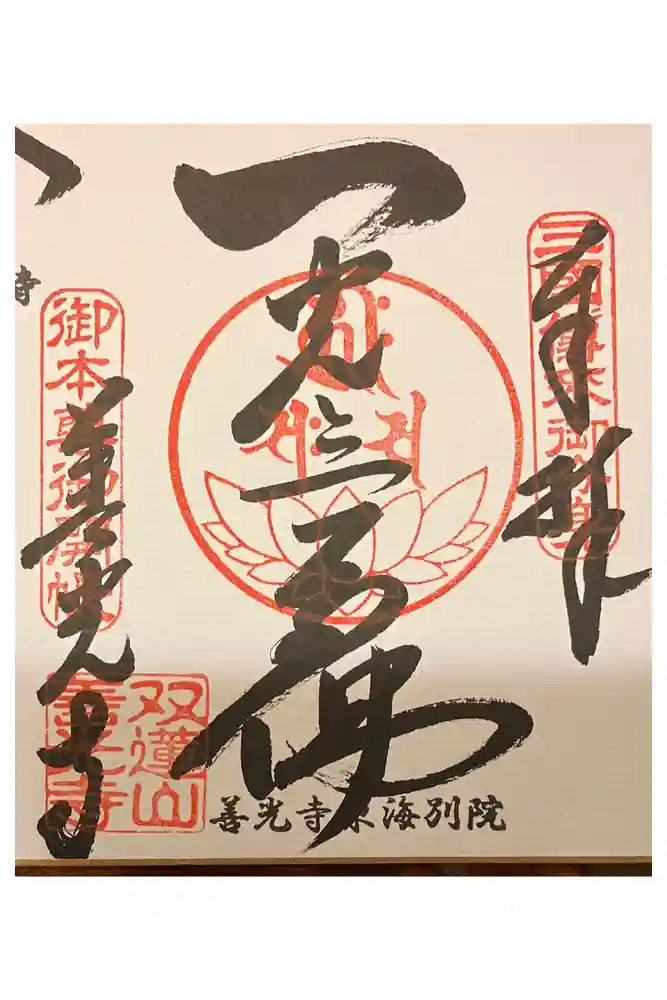 奉拝
三國傳来御本尊
一光三尊佛
善光寺
御本尊御開帳
双蓮山
善光寺
善光寺東海別院
寺